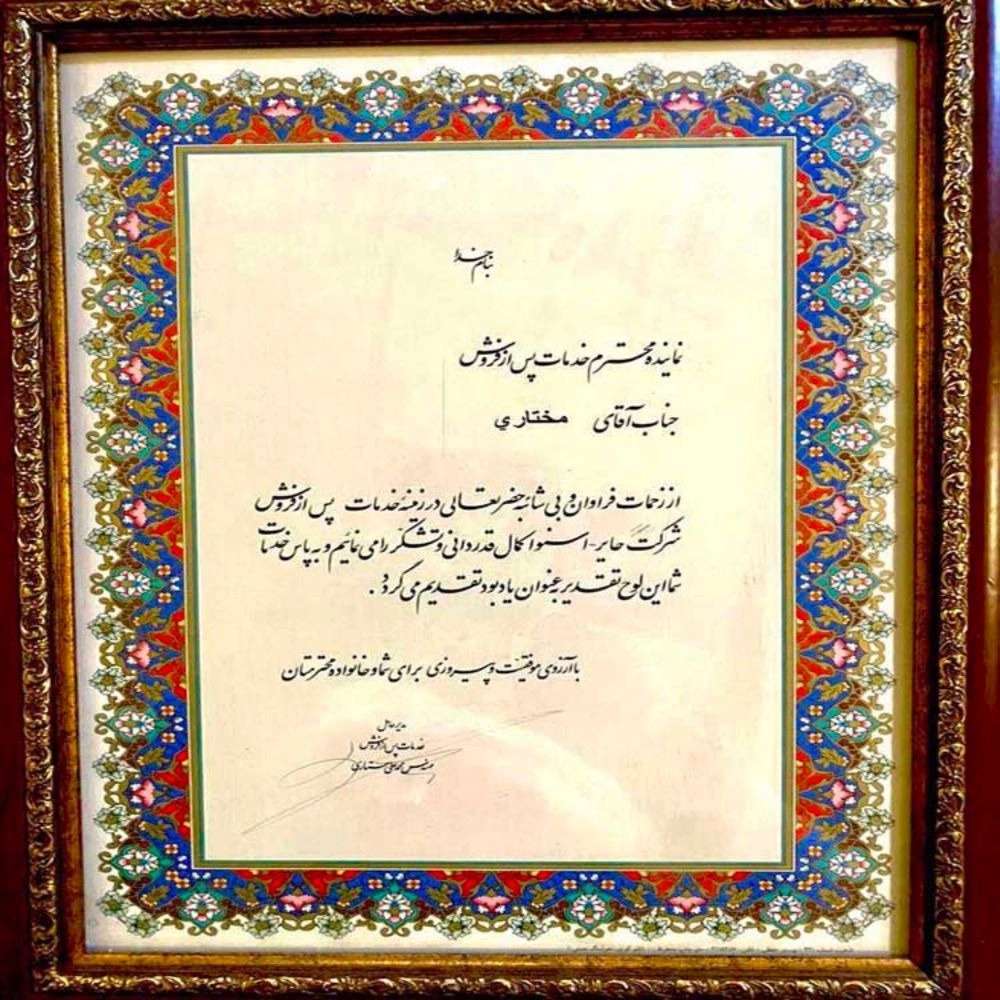 بنام خدا
نماینده محترم خدمات پس از فروش
جناب آقای مختاري
از زحمات فراوان و بی شائبه حضرتعالی در زمینه خدمات پس از فروش
شرکت حایر-اسنوا کمال قدردانی و تشکر را می نمائیم و به پاس خدمات
شما این لوح تقدیر به عنوان یادبود تقدیم می گردد.
با آرزوی موفقیت و پیروزی برای شما و خانواده محترمتان
مدیرعامل
خدمات پس از فروش
مهندس محمدعلی ستاری